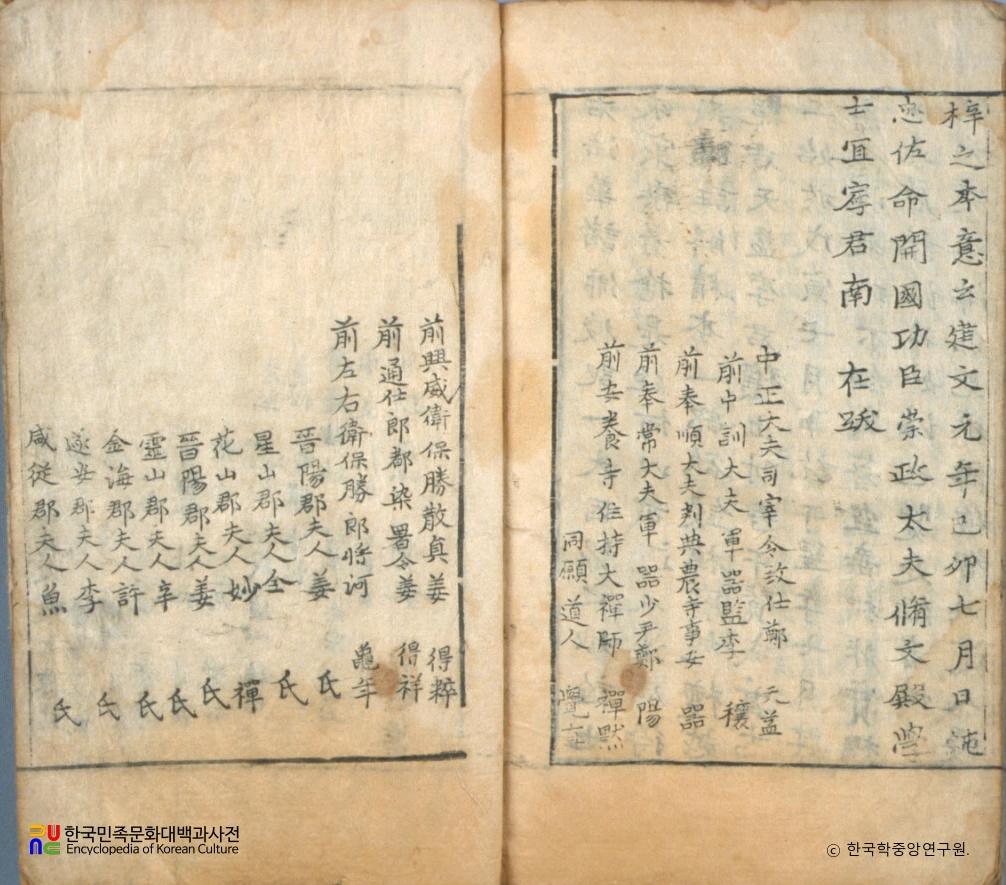 梓之本意云建文元年己卯七月日純
忠佐命開國功臣崇政大夫脩文殿學
士宜寧君南 在跋
中正大夫司宰令致仕鄭 元益
前中訓大夫軍器監李 穰
前奉順大夫判典農寺事安 器
前奉常大夫軍器少尹鄭 陽
前安養寺住持大禪師 禪黙
同願道人 覺
前興威衛保勝散員姜 得粹
前通仕郎都染署令姜 得祥
前左右衛保勝郎將河 龜年
晉陽郡夫人姜 氏
星山郡夫人全 氏
花山郡夫人妙 禪
晉陽郡夫人姜 氏
靈山郡夫人辛 氏
金海郡夫人許 氏
遂安郡夫人李 氏
咸從郡夫人魚 氏
한국민족문화대백과사전
Encyclopedia of Korean Culture
ⓒ 한국학중앙연구원.